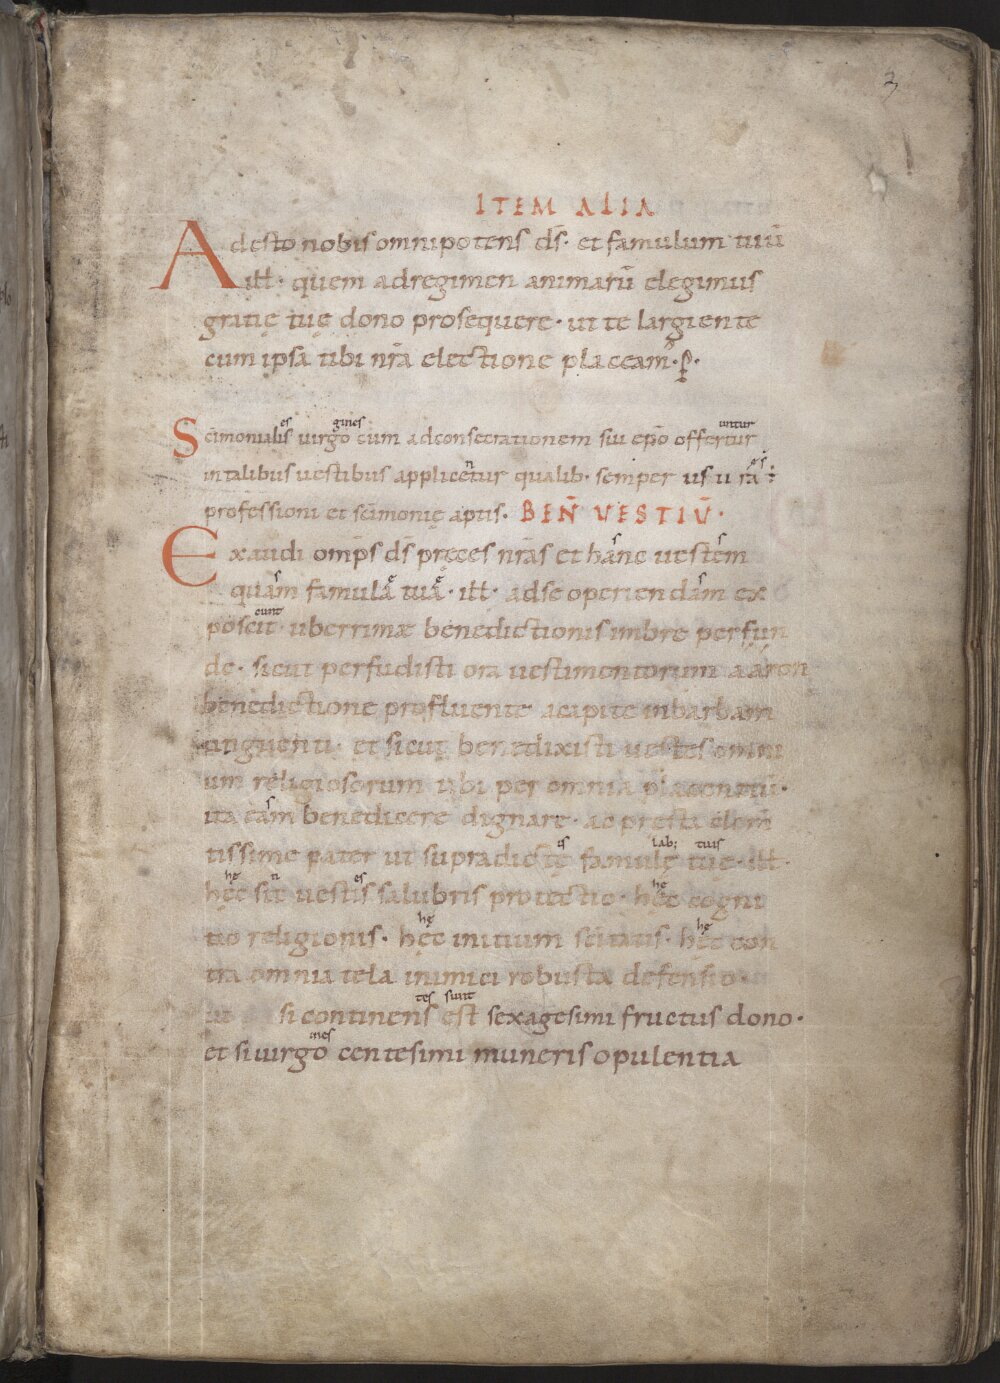 3
ITEM ALIA
Adesto nobis omnipotens ds̄· et famulum tuū
ill̄· quem adregimen animarū elegimus
gratię tuę dono prosequere· ut te largiente
cum ipsa tibi nrā electione placeam̄·p̄·
es gines untur
Scīmonialis virgo cum adconsecrationem suī epō offertur
n os
intalibus vestibus applicetur qualib· semper usura
professioni et scīmonię aptis. BEN̄ VESTIŪ·
s s
Exaudi omp̄s ds̄ pręces nrās et hanc vestem
s ę ę s
quam famula tua· ill̄· adse operiendam ex
cunt
poscit· uberrimæ benedictionis imbre perfun
de· sicut perfudisti ora vestimentorum aaron
benedictione profluente acapite inbarbam
unguenti· et sicut benedixisti vestes omni
um religiosorum tibi per omnia placentiū·
s
ita eam benedicere dignare· ac presta clem̄
is lab; tuis
tissime pater ut supradictę famulę tuę· ill̄·
hę n es hę
hęc sit vestis salubris protectio· hęc cogni
hę hę
tio religionis· hęc initium scītatis· hęc con
tra omnia tela inimici robusta defensio
tes sunt
ut si continens est sexagesimi fructus dono·
ines
et si virgo centesimi muneris opulentia